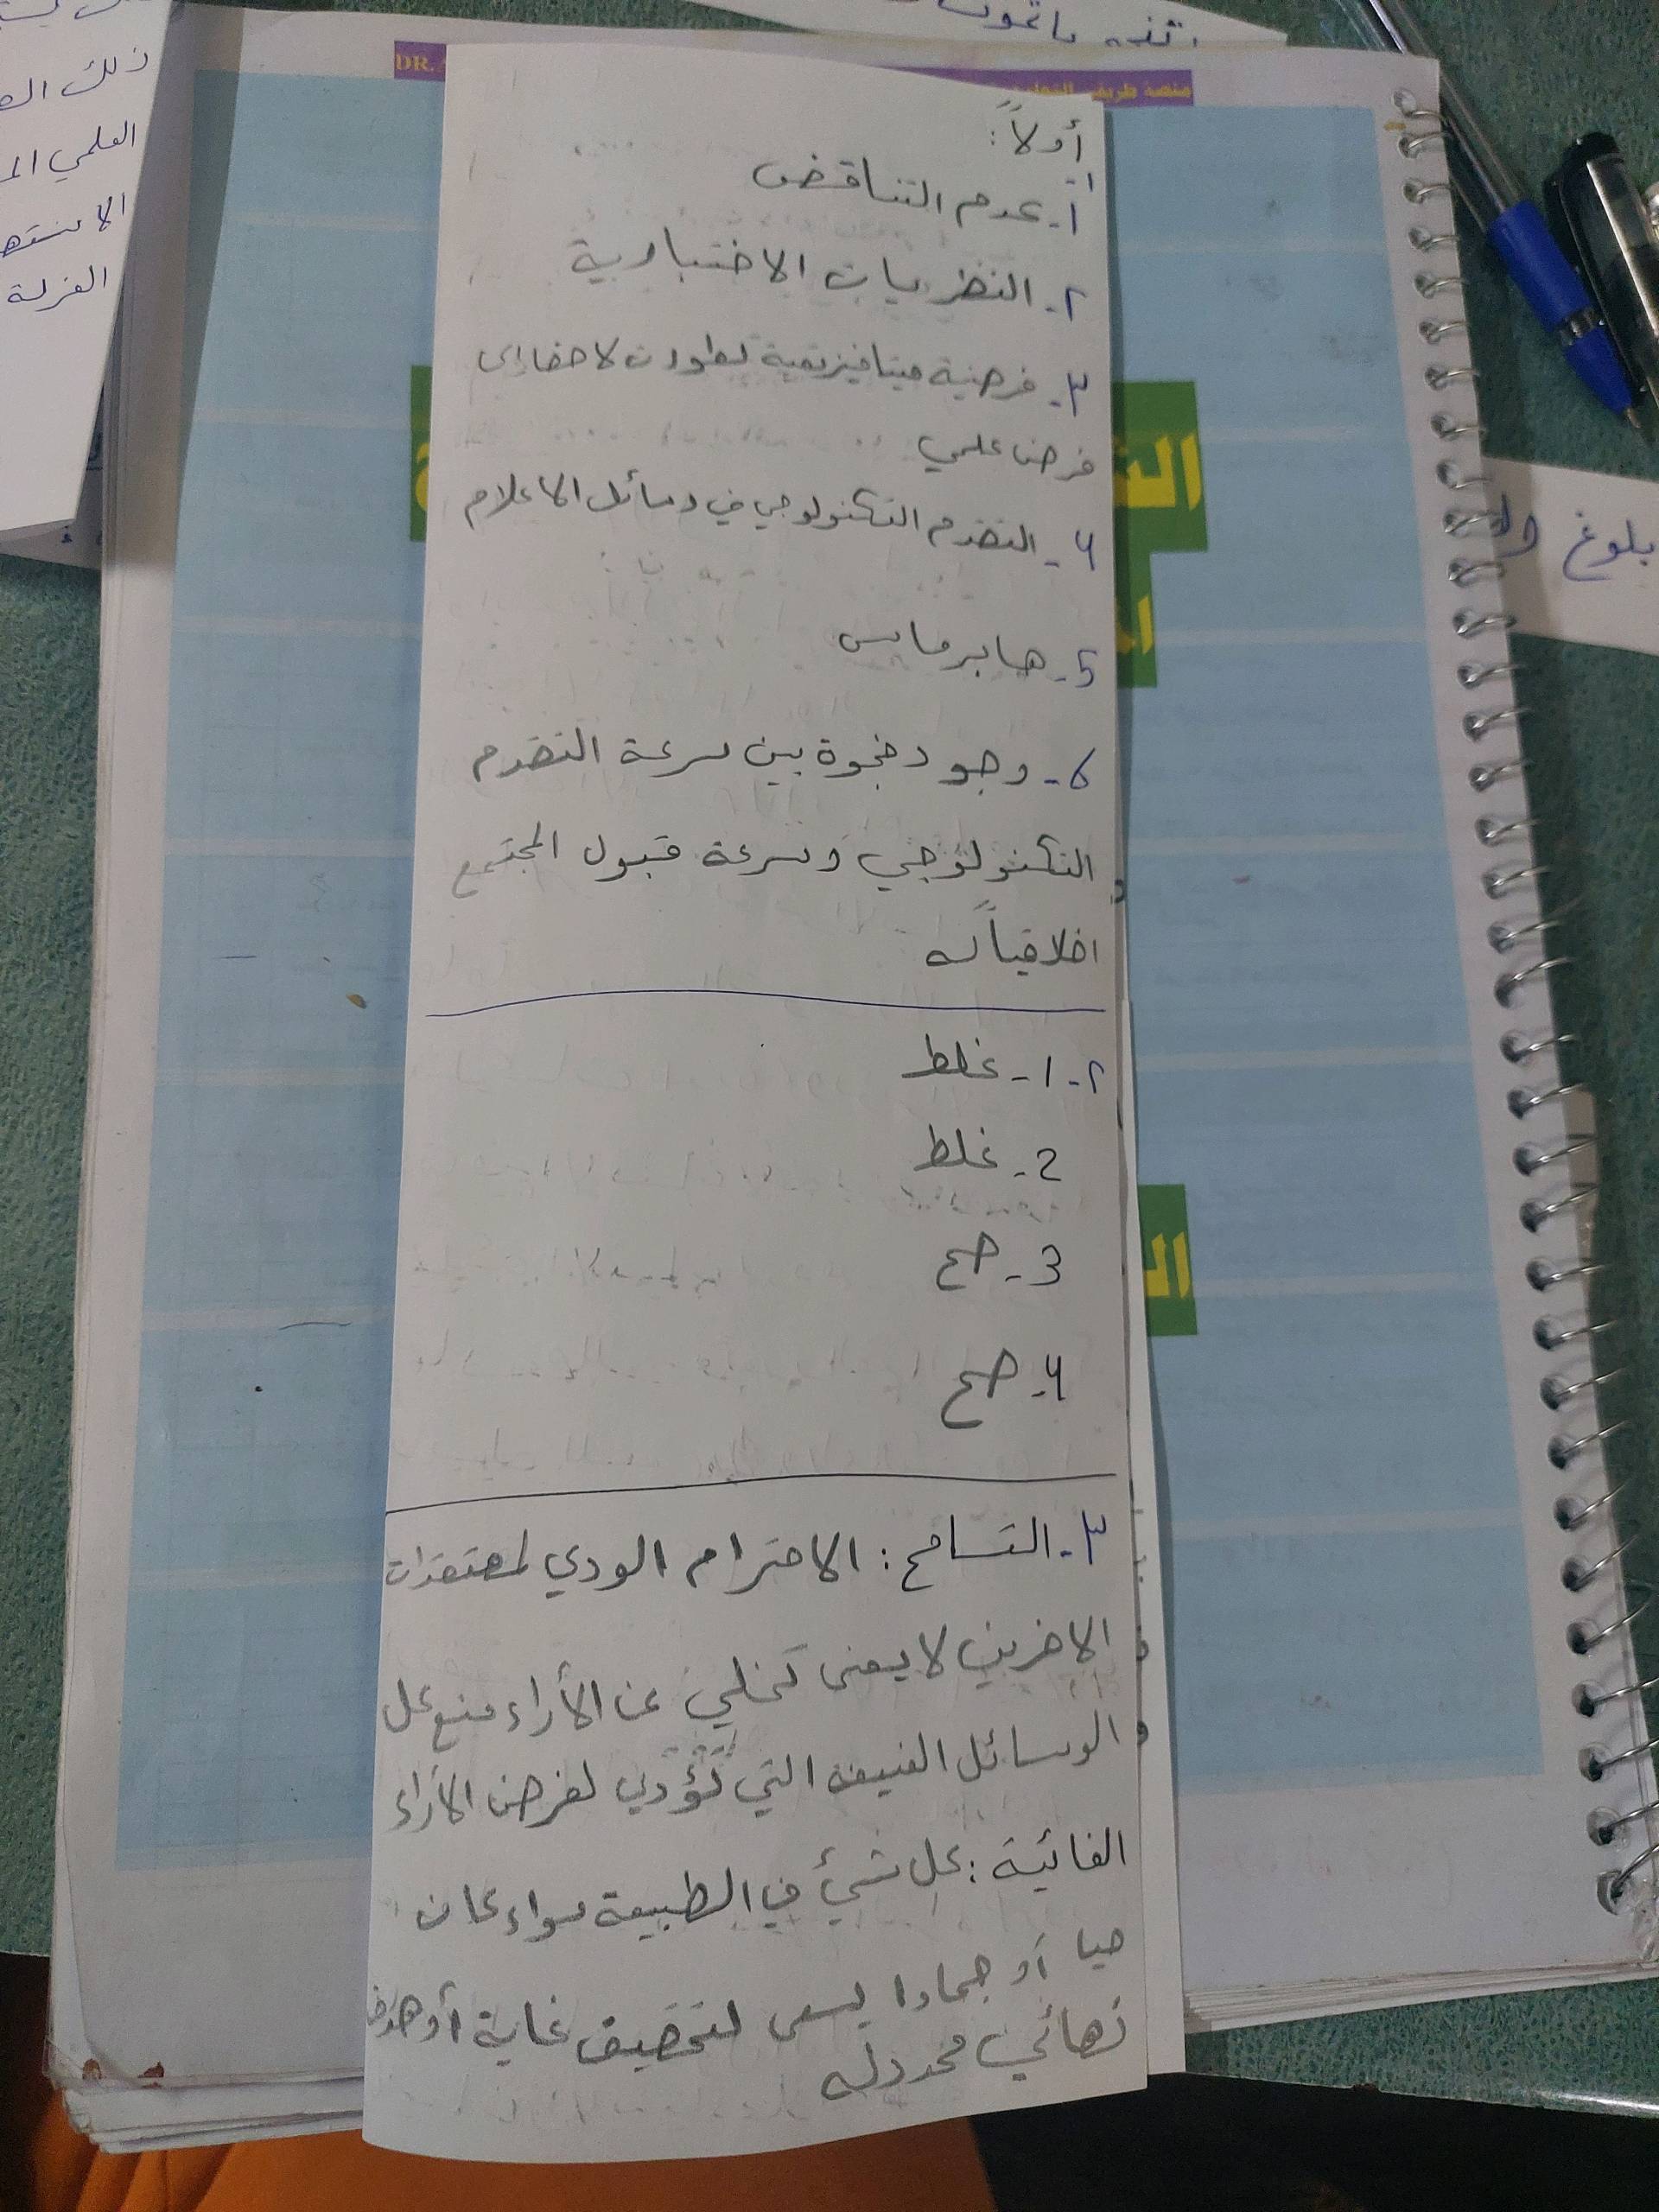 أولاً:
1- عدم التناقض
٢- النظريات الاختبارية
٣- فرضية ميتافيزيقية تطورت لاحقا الى
فرض علمي
4- التقدم التكنولوجي في وسائل الاعلام
5- هابرماس
6- وجود فجوة بين سرعة التقدم
التكنولوجي وسرعة قبول المجتمع
اخلاقياً له
٢- 1- غلط
2- غلط
3- صح
4- صح
٣- التسامح: الاحترام الودي لمعتقدات
الاخرين لا يعني تخلي عن الأراء منع كل
الوسائل العنيفة التي تؤدي لفرض الأراء
الغائية: كل شيئ في الطبيعة سواء كان
حيا أو جمادا يسعى لتحقيق غاية أو هدف
نهائي محدد له
DR.
منصة طريقي
ذلك
العلمي
بلوغ